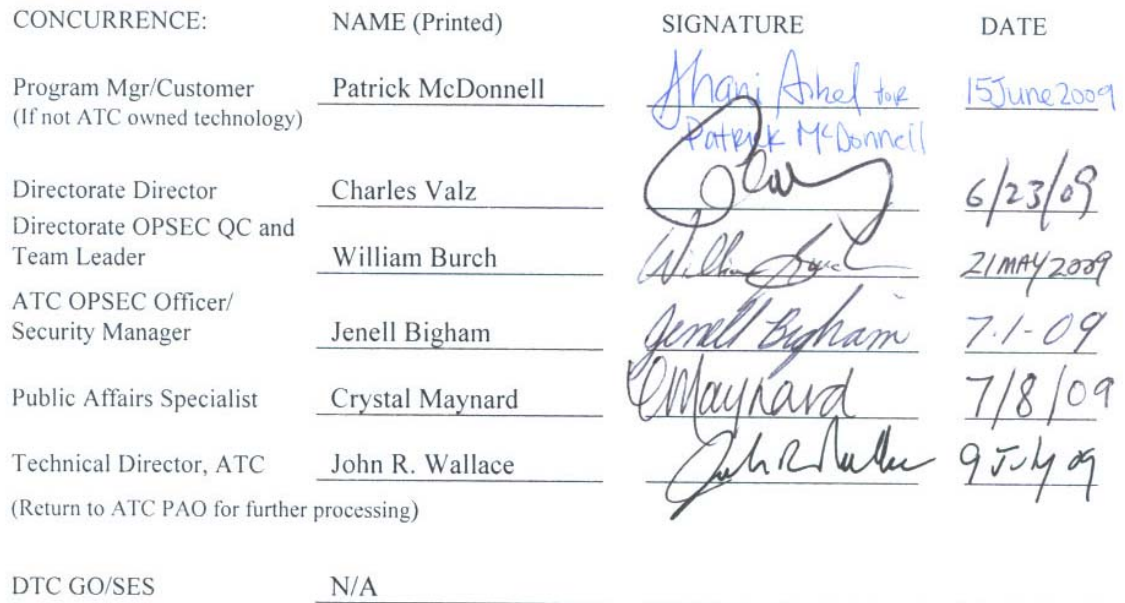 CONCURRENCE: NAME (Printed) SIGNATURE DATE
Program Mgr/Customer Patrick McDonnell for 15 June 2009
(If not ATC owned technology)
Patrick McDonnell
Directorate Director Charles Valz 6/23/09
Directorate OPSEC QC and
Team Leader William Burch William Burch 21 MAY 2009
ATC OPSEC Officer/
Security Manager Jenell Bigham Jenell Bigham 7-1-09
Public Affairs Specialist Crystal Maynard CMaynard 7/8/09
Technical Director, ATC John R. Wallace John R Wallace 9 July 09
(Return to ATC PAO for further processing)
DTC GO/SES N/A